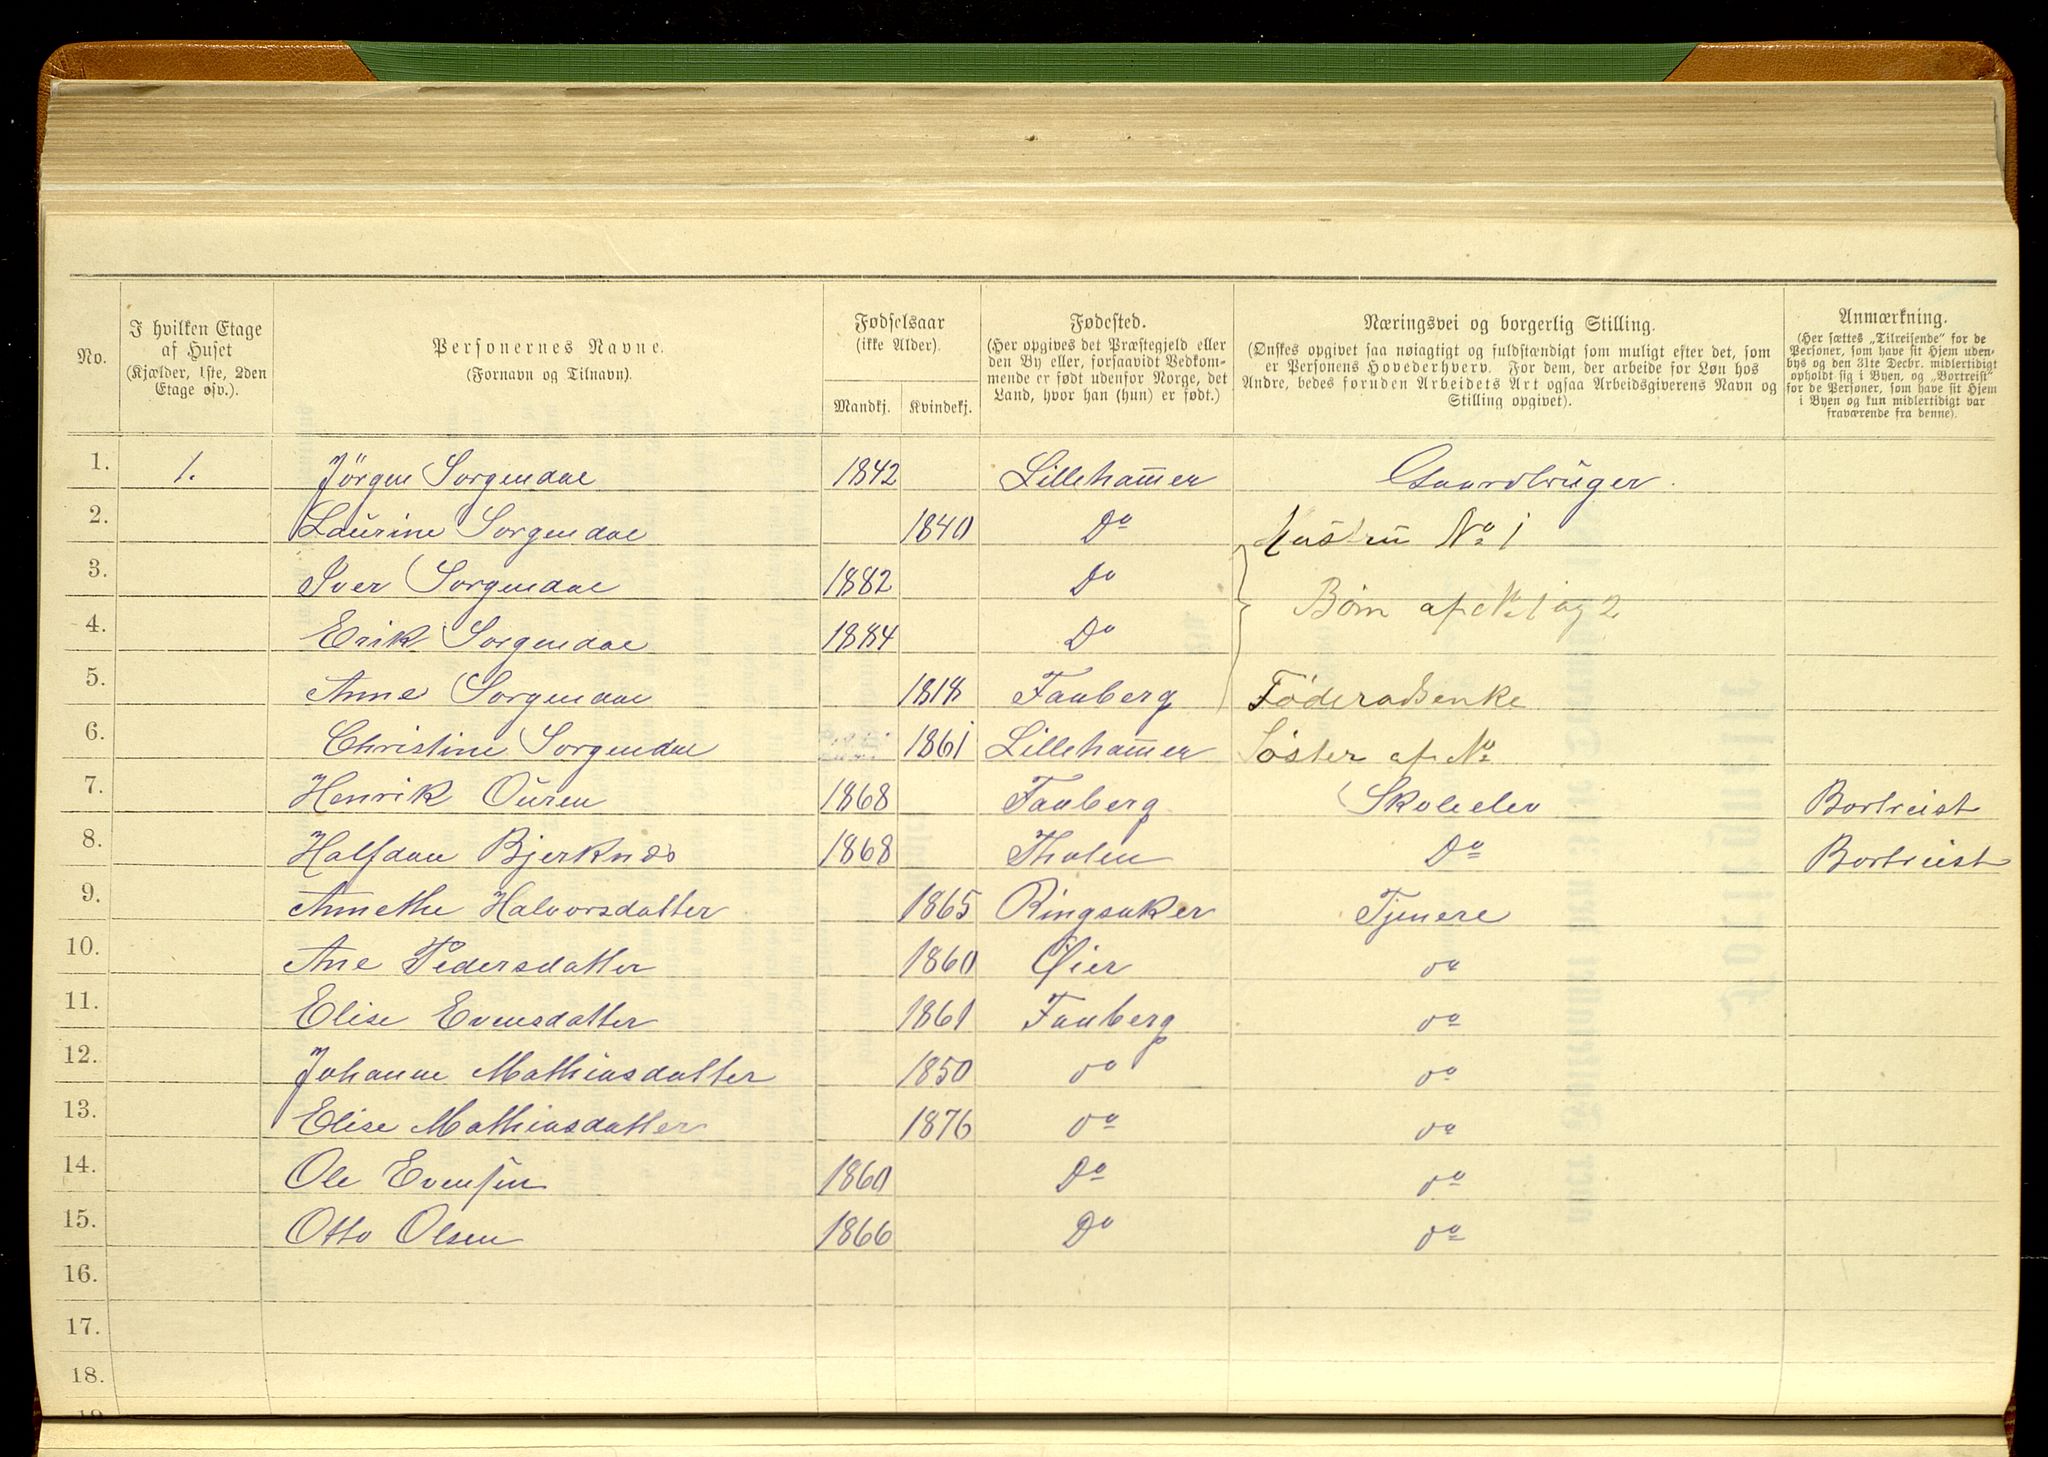 No.
I hvilken Etage af Huset (Kjælder, 1ste, 2den Etage osv.).
Personernes Navne. (Fornavn og Tilnavn).
Fødselsaar (ikke Alder).
Mandkj. Kvindekj.
Fødested. (Her opgives det Præstegjeld eller den By eller, forsaavidt Vedkommende er født udenfor Norge, det Land, hvor han (hun) er født.)
Næringsvei og borgerlig Stilling. (Ønskes opgivet saa nøiagtigt og fuldstændigt som muligt efter det, som er Personens Hovederhverv. For dem, der arbeide for Løn hos Andre, bedes foruden Arbeidets Art ogsaa Arbeidsgiverens Navn og Stilling opgivet).
Anmærkning. (Her sættes „Tilreisende" for de Personer, som have sit Hjem udenbys og den 31te Decbr. midlertidigt opholdt sig i Byen, og „Bortreist" for de Personer, som have sit Hjem i Byen og kun midlertidigt var fraværende fra denne).
1. 1. Jörgen Sorgendal 1842 Lilleham̄er Gaardbrŭger.
2. Laŭrine Sorgendal 1840 Do Hŭstrŭ No 1
3. Iver Sorgendal 1882 Do
Börn af No 1 og 2
4. Erik Sorgendal 1884 Do
5. Anne Sorgendal 1818 Faaberg Föderadsenke
6. Christine Sorgendal 1861 Lilleham̄er Söster af No
7. Henrik Oŭren 1868 Faaberg Skoleelev Bortreist
8. Halfdan Bjerknæs 1868 Thoten Do Bortreist
9. Annethe Halvorsdatter 1865 Ringsaker Tjenere
10. Ane Pedersdatter 1860 Öier do
11. Elise Evensdatter 1861 Faaberg do
12. Johanne Mathiasdatter 1850 do do
13. Elise Mathiasdatter 1876 do do
14. Ole Evensen 1860 Do do
15. Otto Olsen 1866 Do do
16.
17.
18.
19